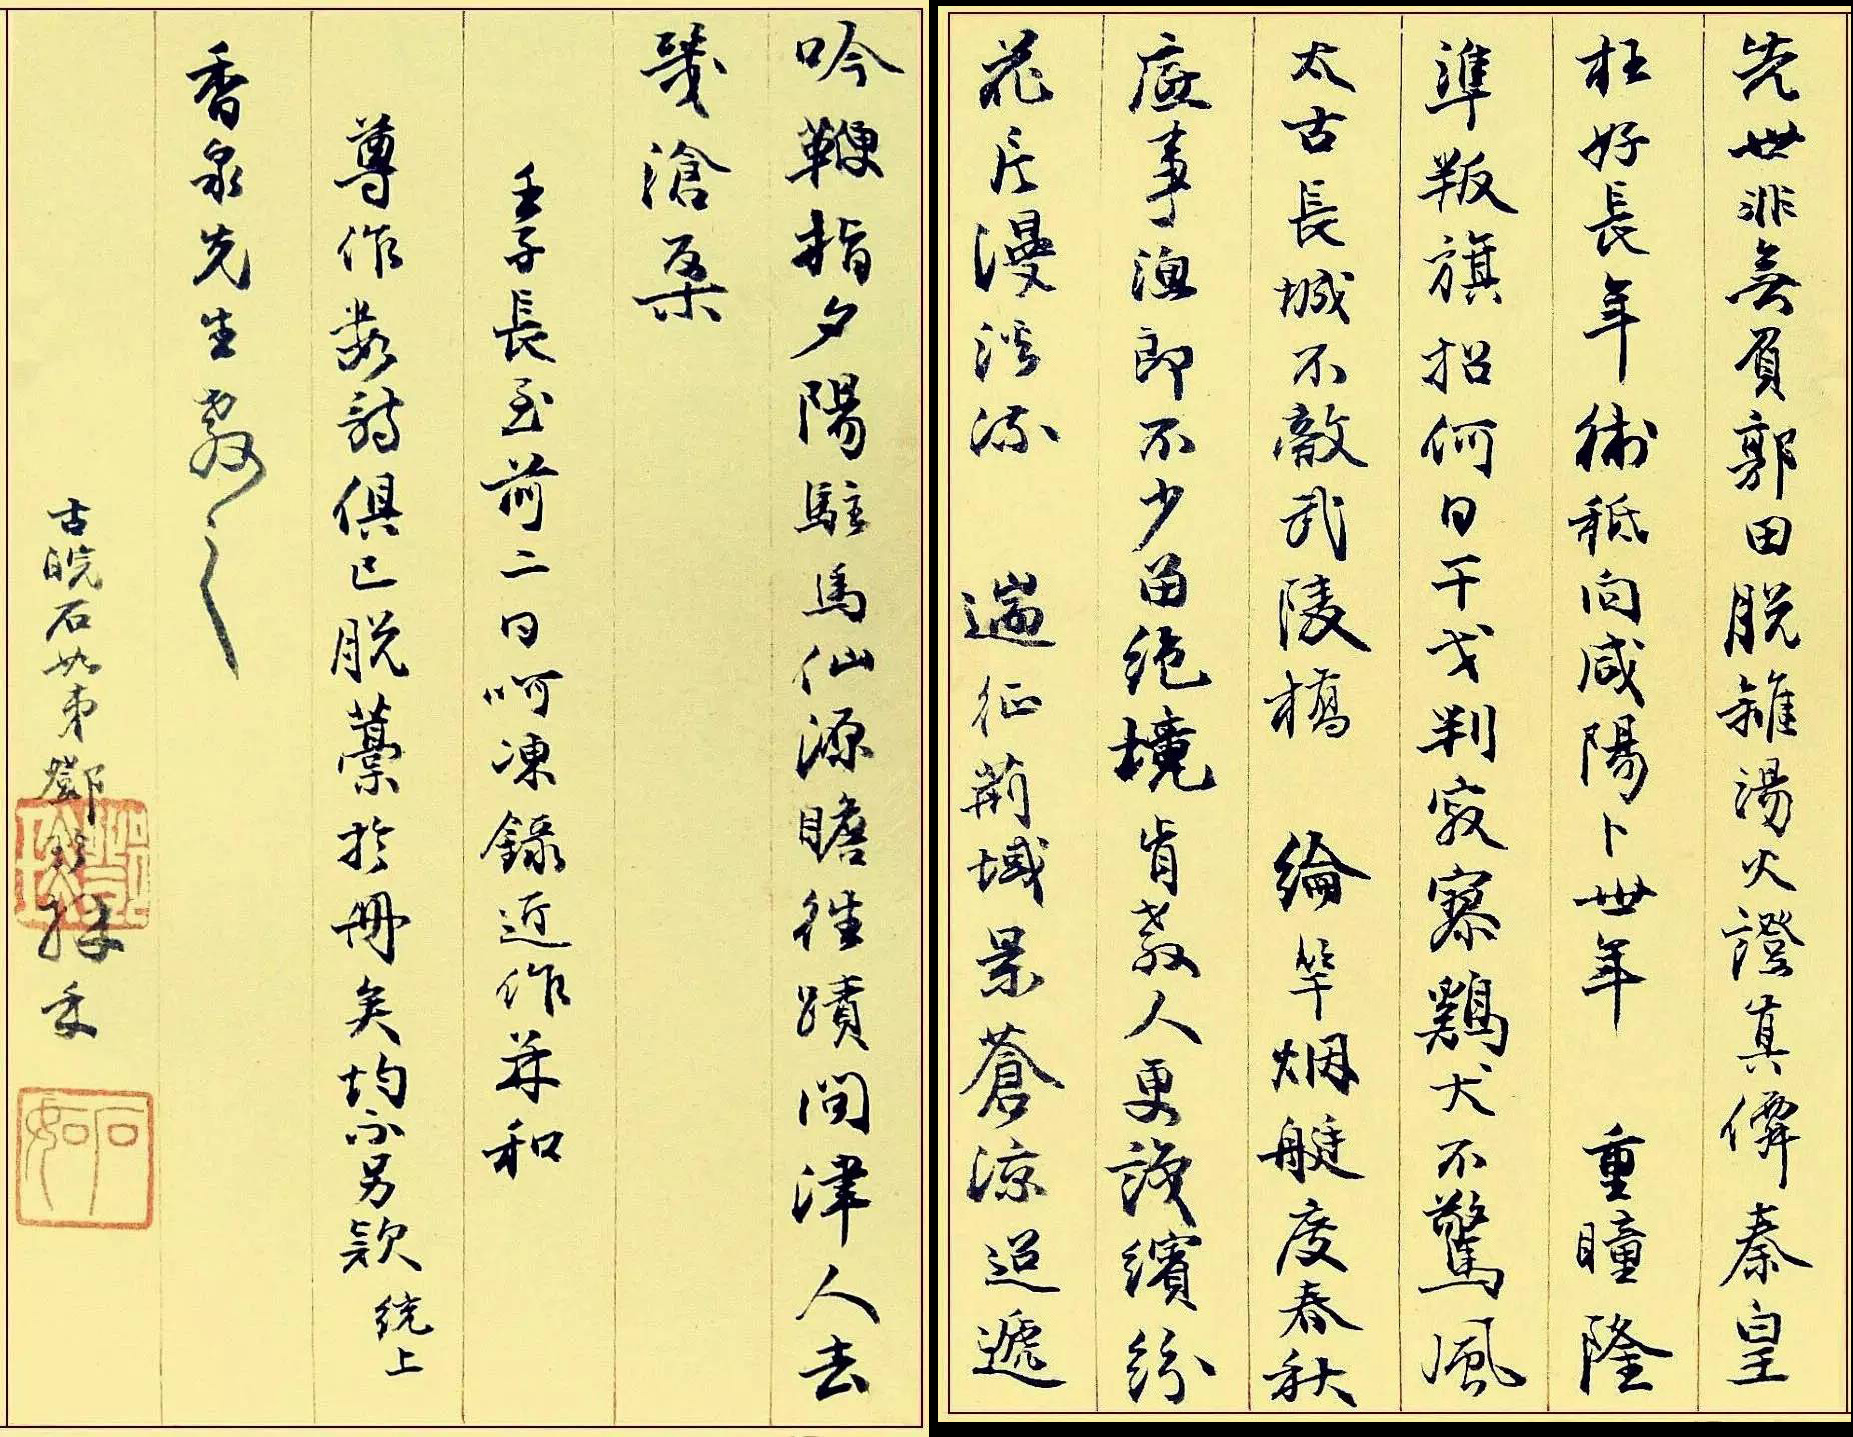 先世非無負郭田脫離湯火證真僊秦皇
枉好長年術秪向咸陽卜世年 重瞳隆
準叛旗招何日干戈判寂寥鷄犬不驚風
太古長城不敵武陵橋 綸竿烟艇度春秋
塵事漁郎不少留絕境肯教人更識繽紛
花片漫浮流 遄征荊域景蒼涼迢遞
吟鞭指夕陽駐馬仙源瞻往蹟問津人去
幾滄桑
壬子長至前二日呵凍錄近作并和
尊作數詩俱已脫藁於冊矣均不另款 統上
香泉先生教之
古皖石如弟鄧
石如